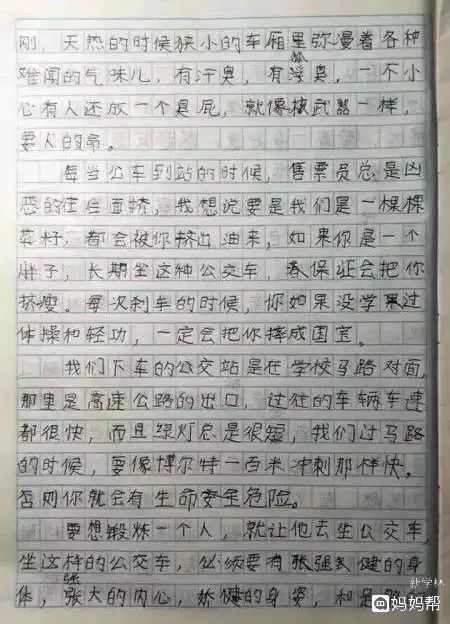 刚，天热的时候狭小的车厢里弥漫着各种
难闻的气味儿，有汗臭，有狐臭，一不小
心有人还放一个臭屁，就像核武器一样，
要人的命。
每当公车到站的时候，售票员总是凶
恶的往里面挤，我想说要是我们是一棵棵
菜籽，都会被你挤出油来，如果你是一个
胖子，长期坐这种公交车，我保证会把你
挤瘦。每次刹车的时候，你如果没学过
体操和轻功，一定会把你摔成国宝。
我们下车的公交站是在学校马路对面，
那里是高速公路的出口，过往的车辆车速
都很快，而且绿灯总是很短，我们过马路
的时候，要像博尔特一百米冲刺那样快。
否则你就会有生命安全危险。
要想锻炼一个人，就让他去坐公交车，
坐这样的公交车，必须要有强健的身
体，强大的内心，娇健的身姿，和
新学林
@妈妈帮